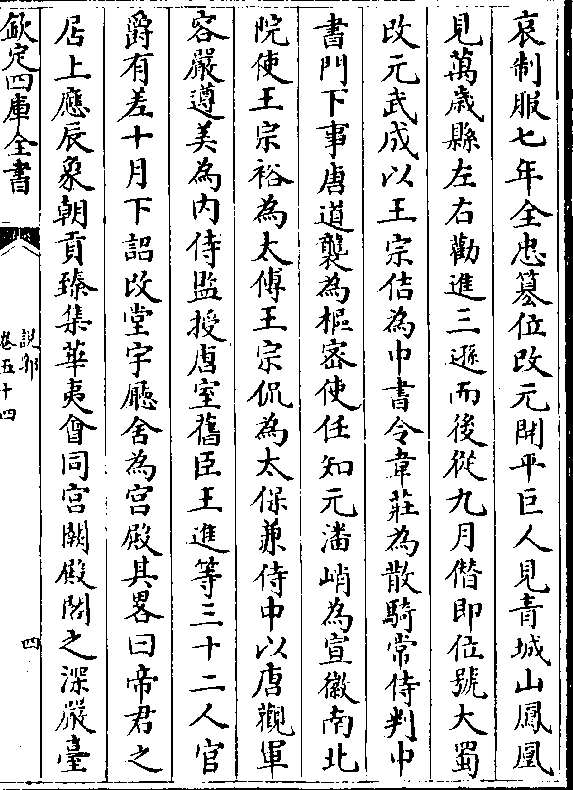 哀制服七年全忠篡位改元開平巨人見青城山鳳凰
見萬歲縣左右勸進三遜而後從九月僭即位號大蜀
改元武成以王宗佶為中書令韋莊為散騎常侍判中
書門下事唐道襲為樞密使任知元潘峭為宣徽南北
院使王宗裕為太傅王宗侃為太保兼侍中以唐觀軍
容嚴遵美為內侍監授唐室舊臣王進等三十二人官
爵有差十月下詔改堂宇廳舍為宮殿其畧曰帝君之
居上應辰象朝貢臻集華夷會同宮闕殿閣之深嚴臺
欽定四庫全書
說郛
卷五十四
四